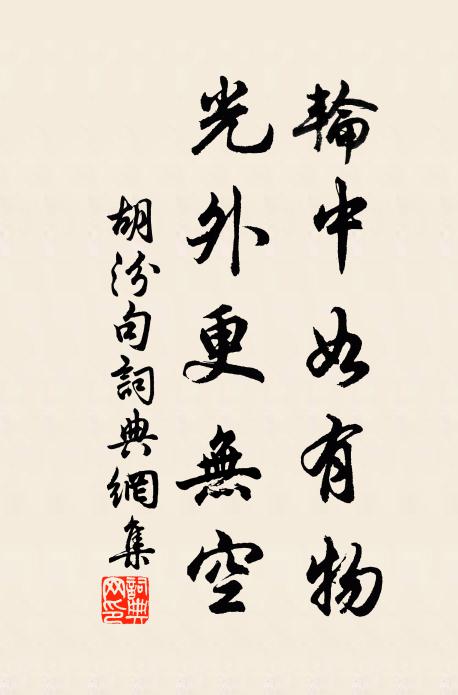 輪中如有物
光外更無空
胡汾句詞典網集
詞典
网印